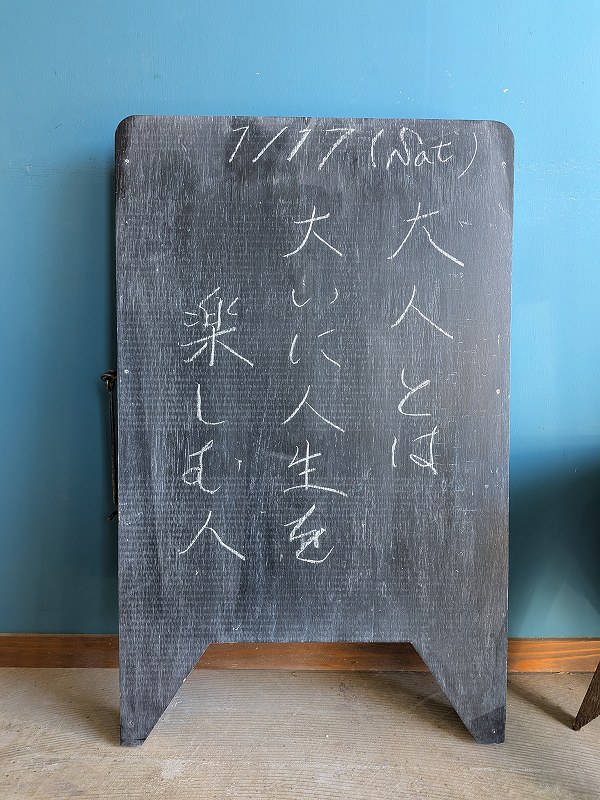 1/17 (Sat)
大人とは
大いに人生を
楽しむ人